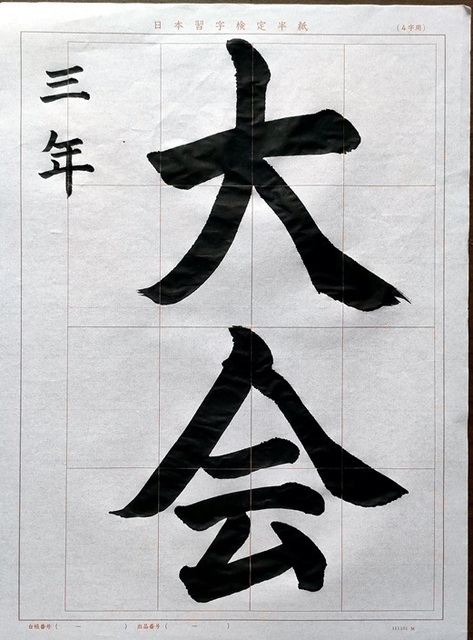 日本習字検定半紙
(4字用)
大会
三年
台帳番号( ー )
出品番号( ー )